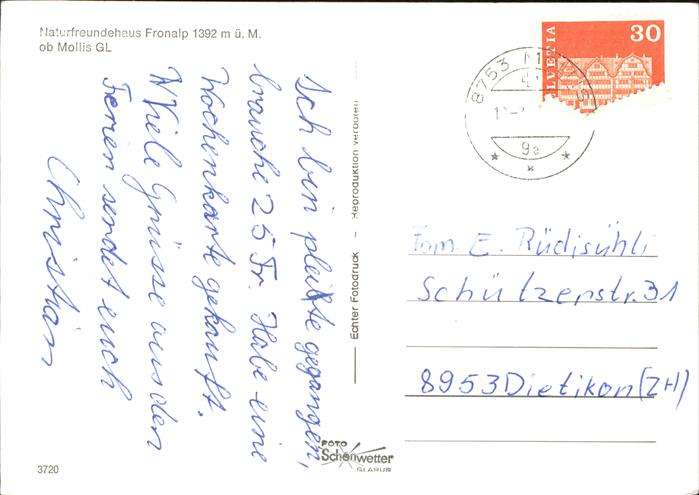 Naturfreundehaus Fronalp 1392 m ü. M.
ob Mollis GL
Ich bin pleite gegangen,
brauche 25 Fr. Habe eine
Wochenkarte gekauft.
Viele Grüsse aus den
Ferien sendet euch
Christian
Echter Fotodruck – Reproduktion verboten
HELVETIA
30
8753
9a
Fam. E. Rüdisühli
Schützenstr. 31
8953 Dietikon (ZH)
FOTO
Schönwetter
GLARUS
3720